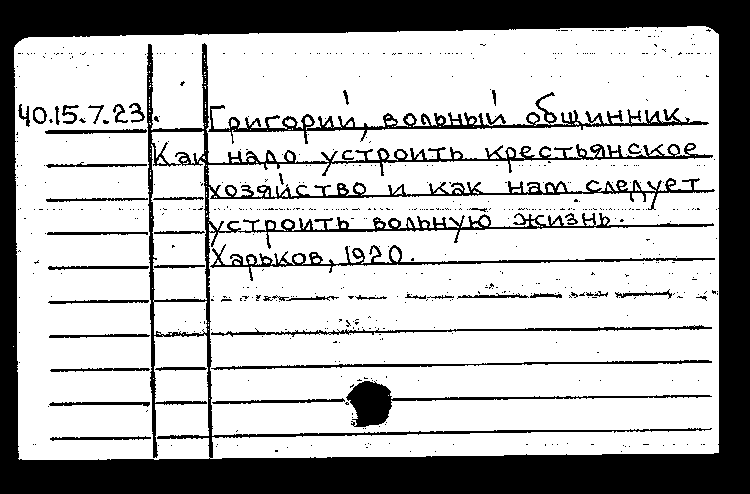 40.15.7.23. Григорий, вольный общинник.
Как надо устроить крестьянское
хозяйство и как нам следует
устроить вольную жизнь.
Харьков, 1920.